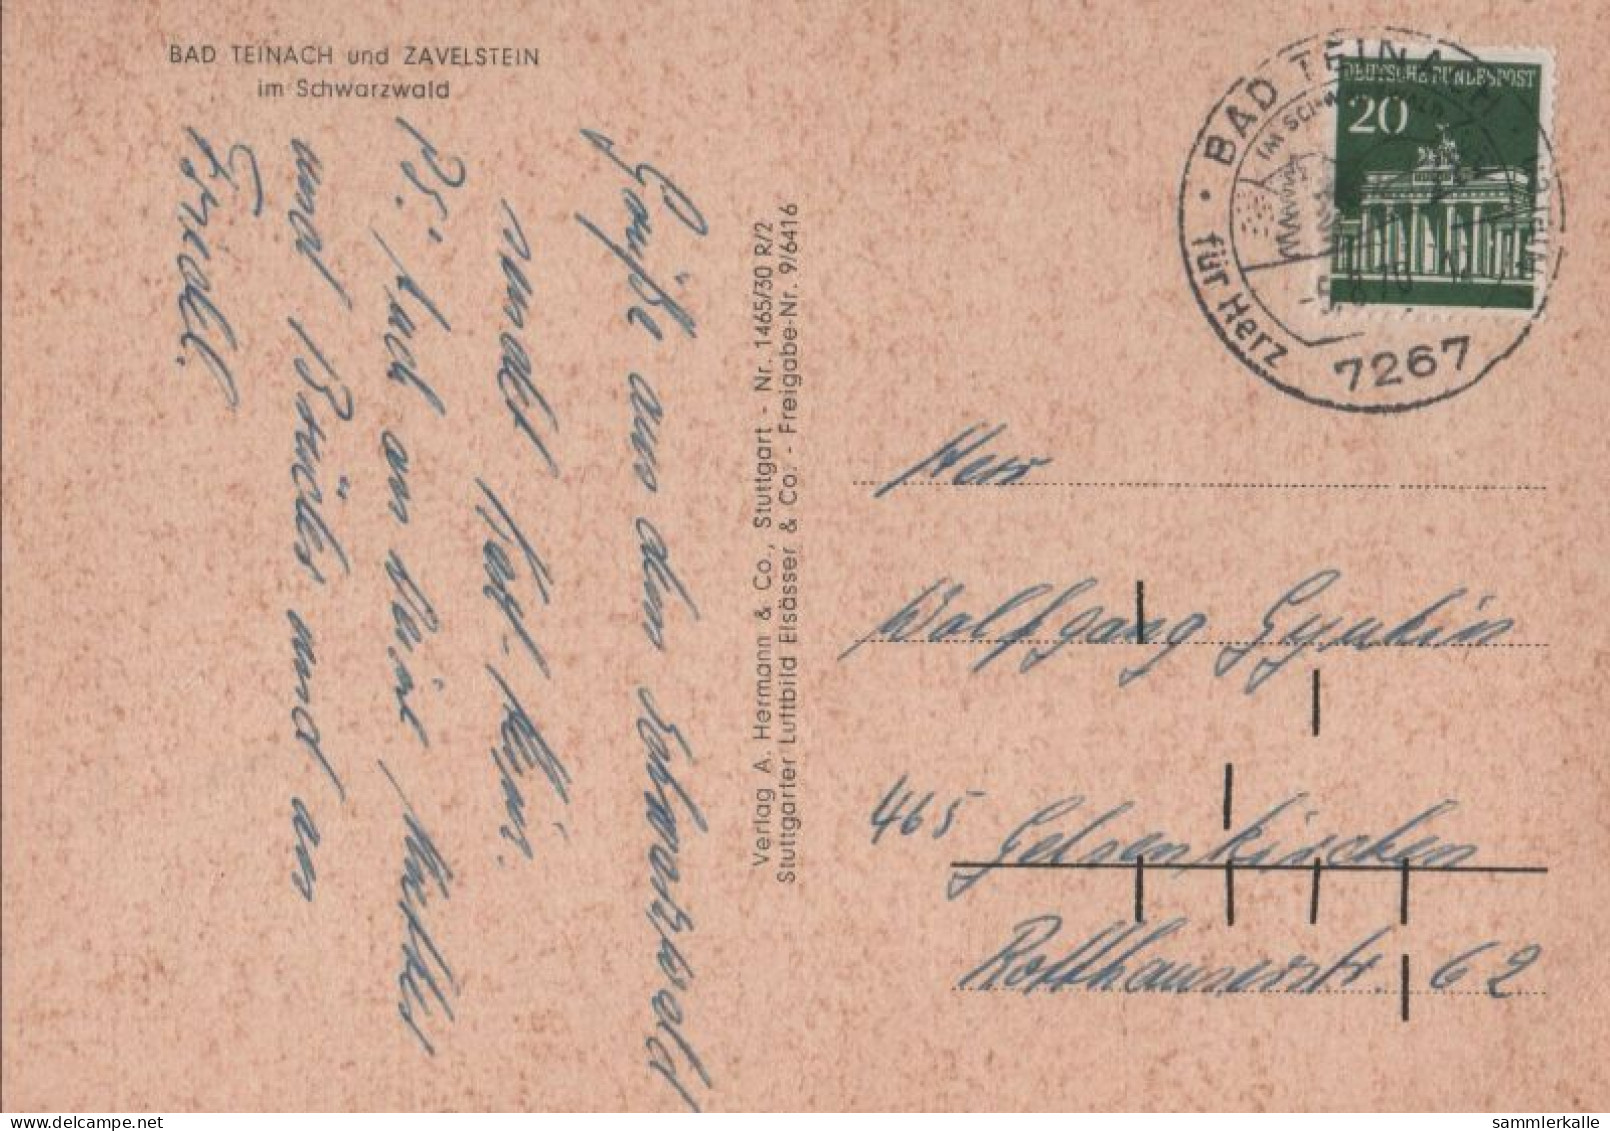 BAD TEINACH und ZAVELSTEIN
im Schwarzwald
Grüße aus dem Schwarzwald
Karl-Heinz.
PS. Auch an Deine
und an
Friedel.
Verlag A. Hermann & Co., Stuttgart - Nr. 1465/30 R/2
Stuttgarter Luftbild Elsässer & Co. - Freigabe-Nr. 9/6416
DEUTSCHE BUNDESPOST
20
BAD TEINACH
IM SCHWARZWALD
für Herz
7267
Herr
Wolfgang
465 Gelsenkirchen
Rotthauserstr. 62
sammlerkalle